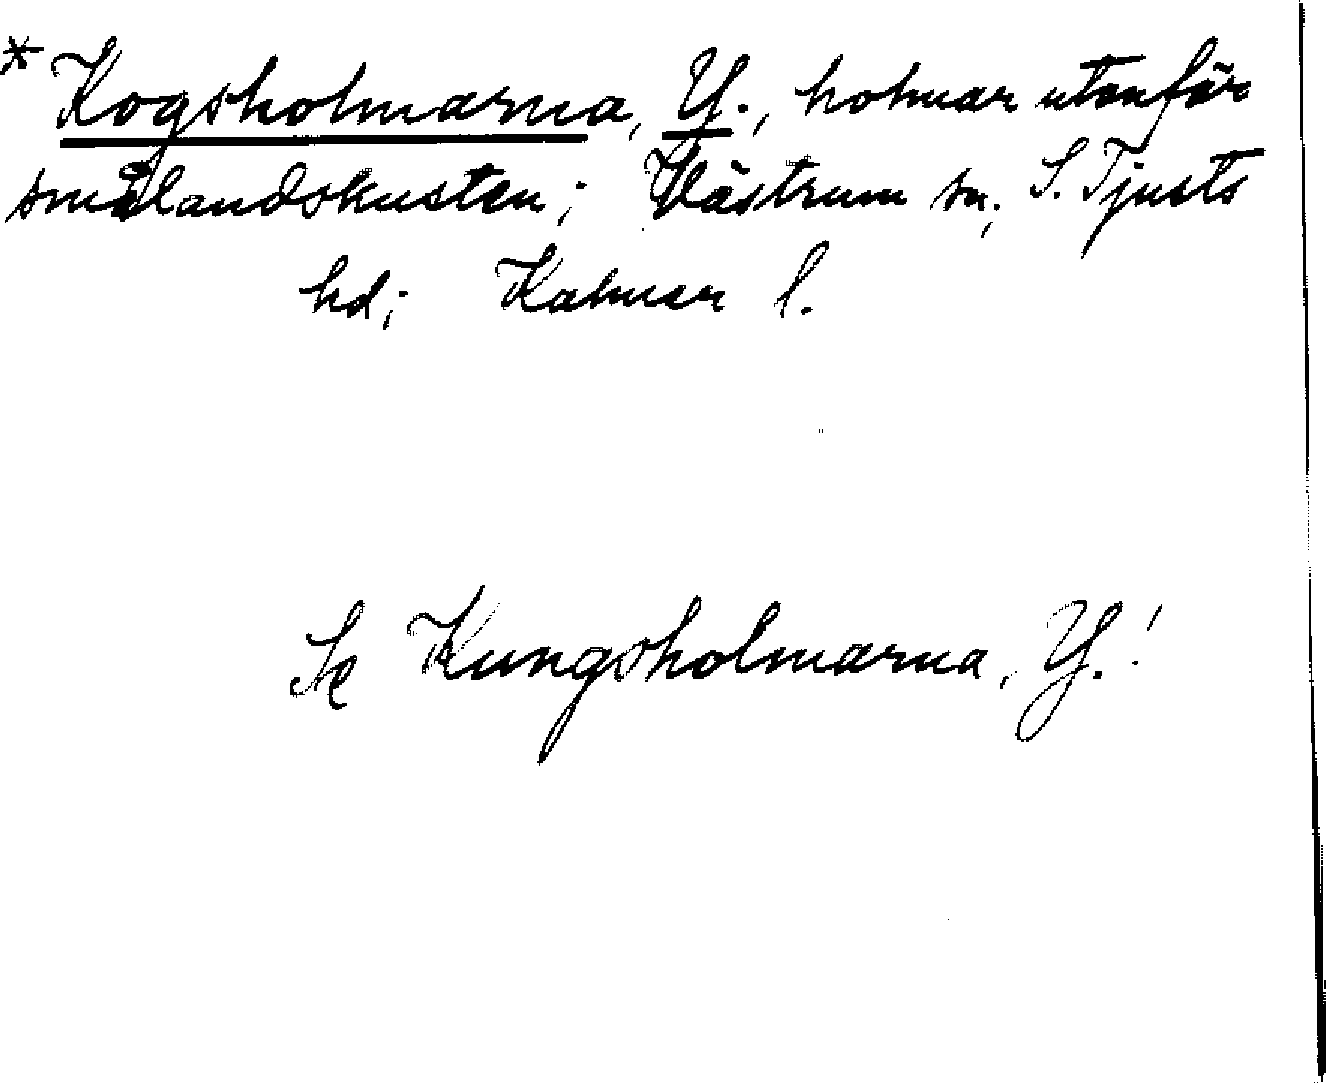 * Kogsholmarna, Y., holmar utanför
smålandskusten; Västrum sn; S. Tjusts
hd; Kalmar l.
Se Kungsholmarna, Y.!